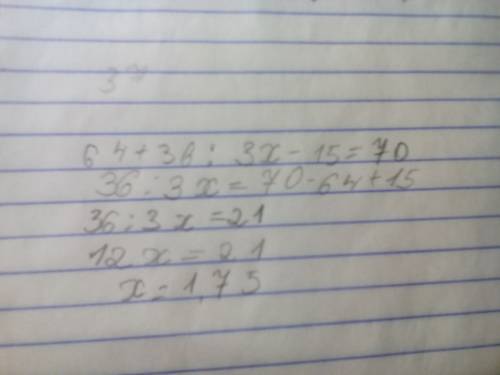 64+36: 3x-15=70
36:3x=70-64+15
36:3x=21
12x=21
x=1,75